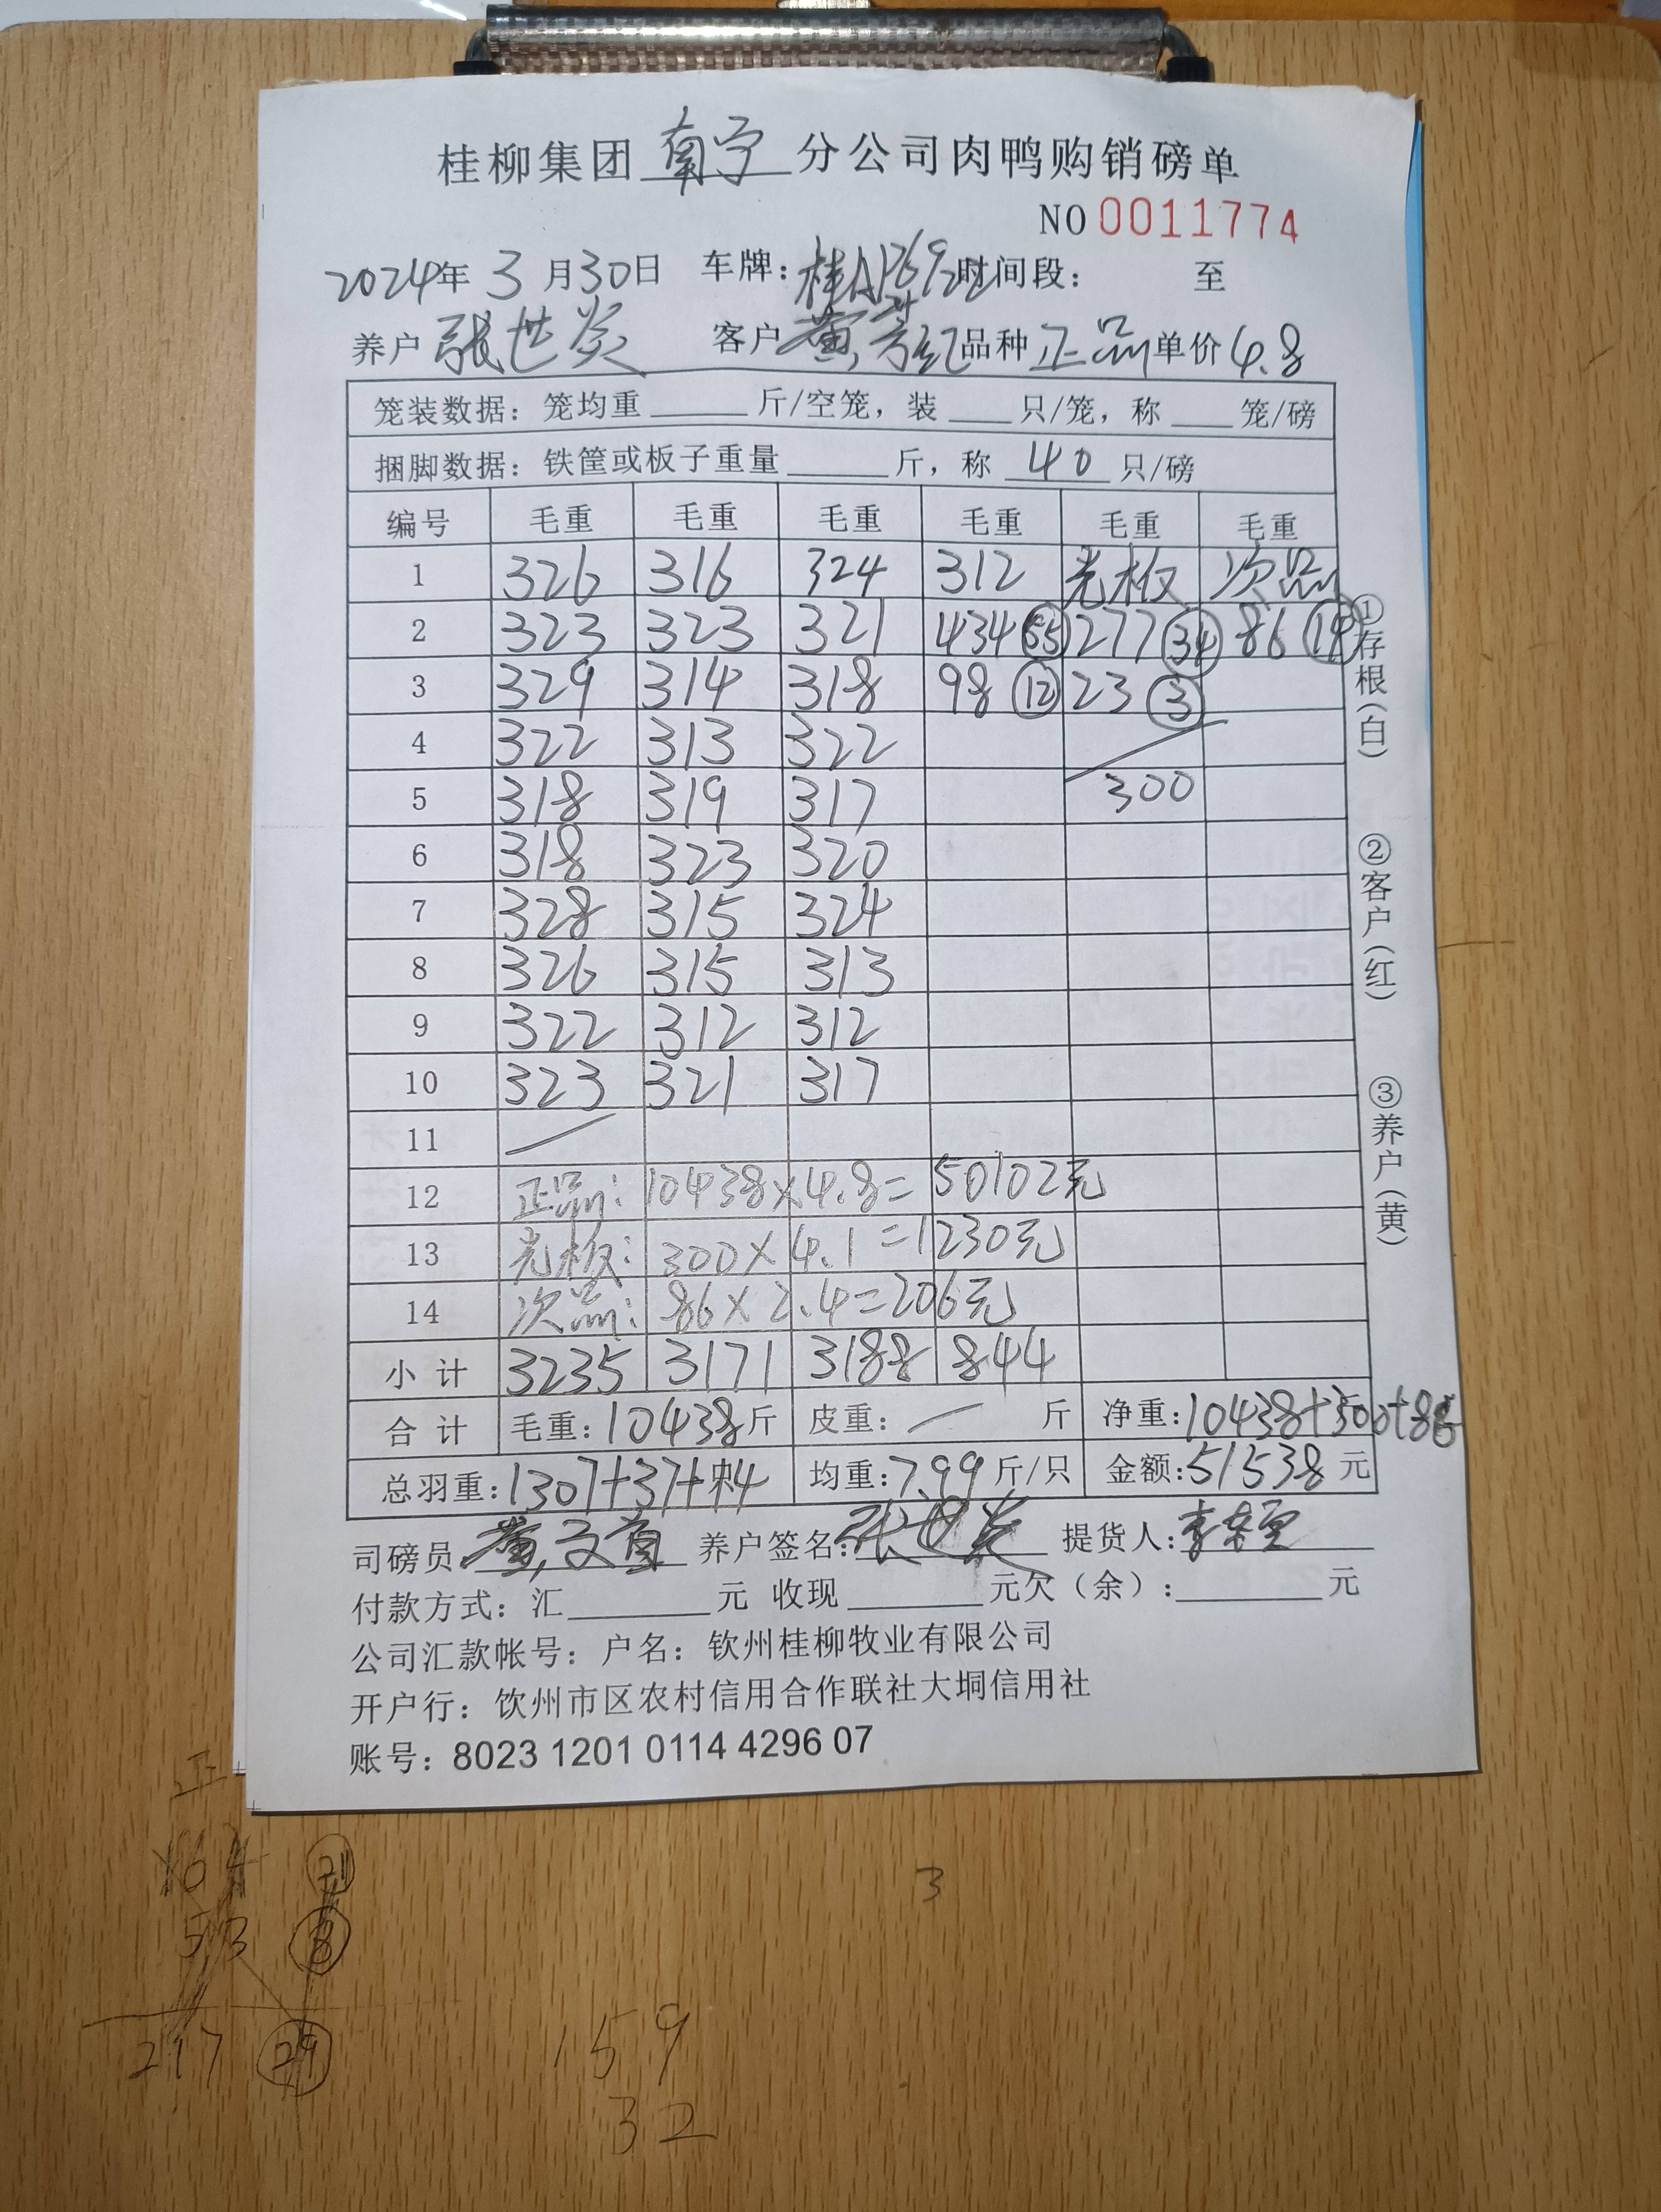 桂柳集团南宁分公司肉鸭购销磅单
NO 0011774
2024年 3 月30日 车牌: 时间段: 至
养户 张世炎 客户 黄芳纪 品种 正品 单价 4.8
笼装数据: 笼均重 斤/空笼, 装 只/笼, 称 笼/磅
捆脚数据: 铁筐或板子重量 斤, 称 40 只/磅
编号 毛重 毛重 毛重 毛重 毛重 毛重
1 326 316 324 312 光板 次品
2 323 323 321 434 (55) 277 (34) 86 (14)
3 329 314 318 98 (12) 23 (3)
4 322 313 322
5 318 319 317 300
6 318 323 320
7 328 315 324
8 326 315 313
9 322 312 312
10 323 321 317
11
12 正品: 10438×4.8=50102元
13 光板: 300×4.1=1230元
14 次品: 86×2.4=206元
小计 3235 3171 3188 844
合计 毛重: 10438斤 皮重: — 斤 净重: 10438+300+86
总羽重: 1307+37+14 均重: 7.99 斤/只 金额: 51538 元
司磅员 养户签名: 张世炎 提货人:
付款方式: 汇 元 收现 元欠(余): 元
公司汇款帐号: 户名: 钦州桂柳牧业有限公司
开户行: 钦州市区农村信用合作联社大垌信用社
账号: 8023 1201 0114 4296 07
①存根(白) ②客户(红) ③养户(黄)
正
164 (21)
53 (8)
217 (29)
3
159
32